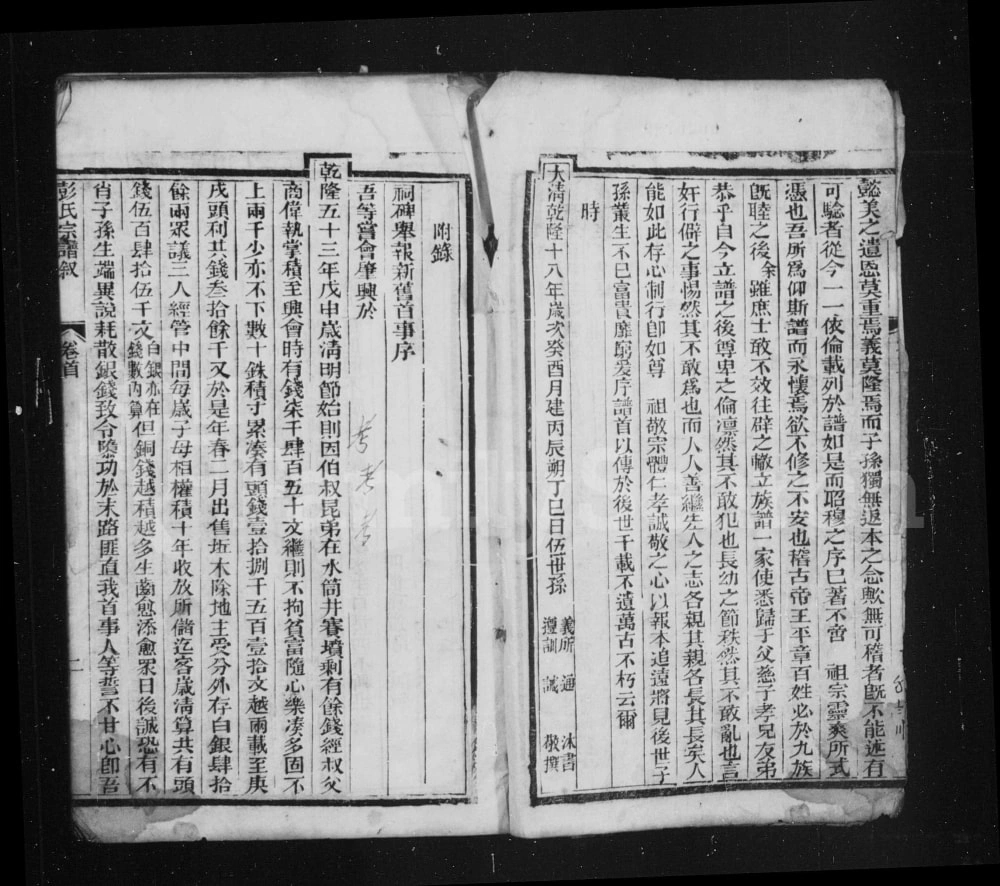 懿美之遺恩莫重焉義莫隆焉而子孫獨無返本之念歟無可稽者既不能述有
可騐者從今一一依倫載列於譜如是而昭穆之序已著不啻 祖宗靈爽所式
憑也吾所為仰斯譜而永懷焉欲不修之不安也稽古帝王平章百姓必於九族
既睦之後余雖庶士敢不效往辟之轍立族譜一家使悉歸于父慈子孝兄友弟
恭乎自今立譜之後尊卑之倫凜然其不敢犯也長幼之節秩然其不敢亂也言
奸行僻之事惕然其不敢為也而人人善繼先人之志各親其親各長其長矣人
能如此存心制行卽如尊 祖敬宗體仁孝誠敬之心以報本追遠將見後世子
孫叢生不已富貴靡窮爰序譜首以傳於後世千載不遺萬古不朽云爾
時
大清乾隆十八年歲次癸酉月建丙辰朔丁巳日伍世孫 義所 通 沐書
遵訓 誠 敬撰
附錄
祠碑舉報新舊百事序
吾等嘗會肇興於
乾隆五十三年戊申歲清明節始則因伯叔昆弟在水筒井賽墳剩有餘錢經叔父
商偉執掌積至興會時有錢柒千肆百五十文繼則不拘貧富隨心樂湊多固不
上兩千少亦不下數十銖積寸累湊有頭錢壹拾捌千五百壹拾文越兩載至庚
戌頭利共錢叁拾餘千又於是年春二月出售坵木除地主受分外存白銀肆拾
餘兩眾議三人經管中間每歲子母相權積十年收放所儲迄客歲清算共有頭
錢伍百肆拾伍千文白銀亦在錢數內算但銅錢越積越多生齒愈添愈眾日後誠恐有不
肖子孫生端異說耗散銀錢致令隳功於末路匪直我首事人等誓不甘心卽吾
彭氏宗譜叙 卷首 二